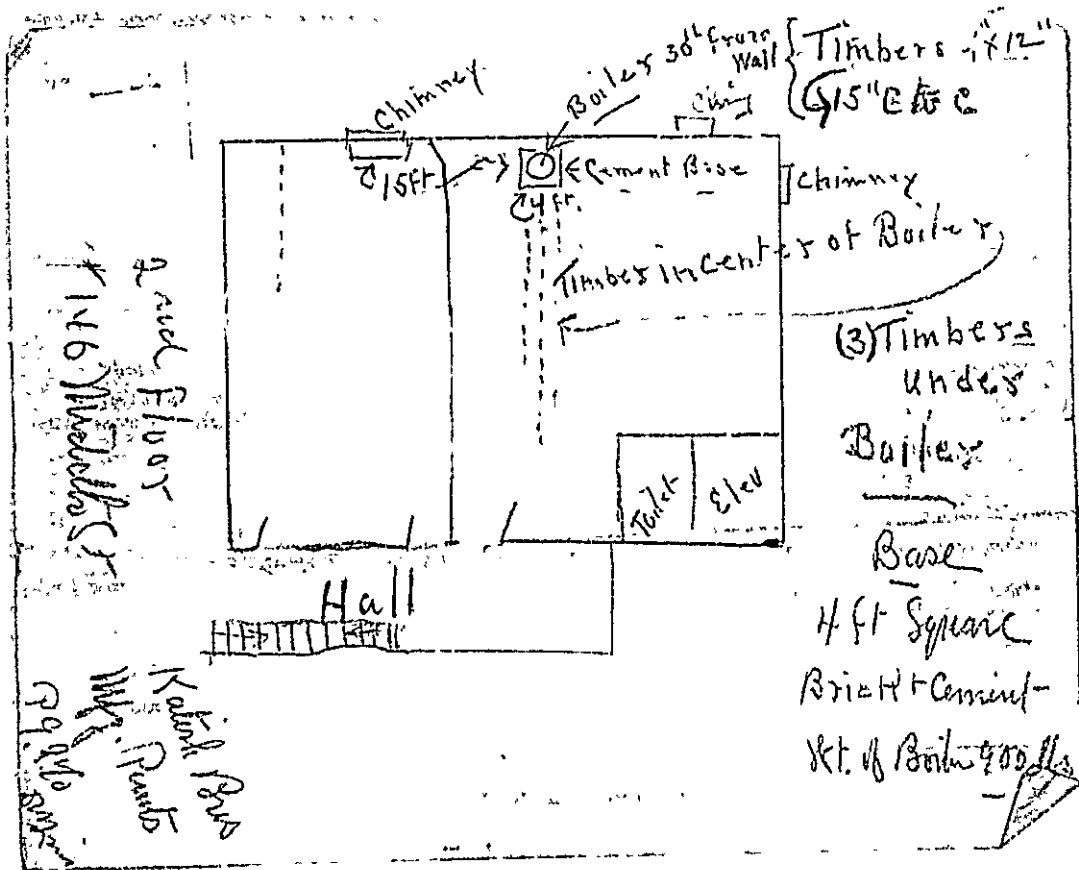 Boiler 30" from
Wall
Timbers
X12"
15" C to C
Chimney
15 ft.
Cement Base
4 ft.
Chimney
Timber in Center of Boiler
(3) Timbers
under
Boiler
Base
4 ft Square
Brick + Cement
Wt. of Boiler 900 lbs
Toilet
Elev
Hall
2nd Floor
Bros
Mfg. Pants